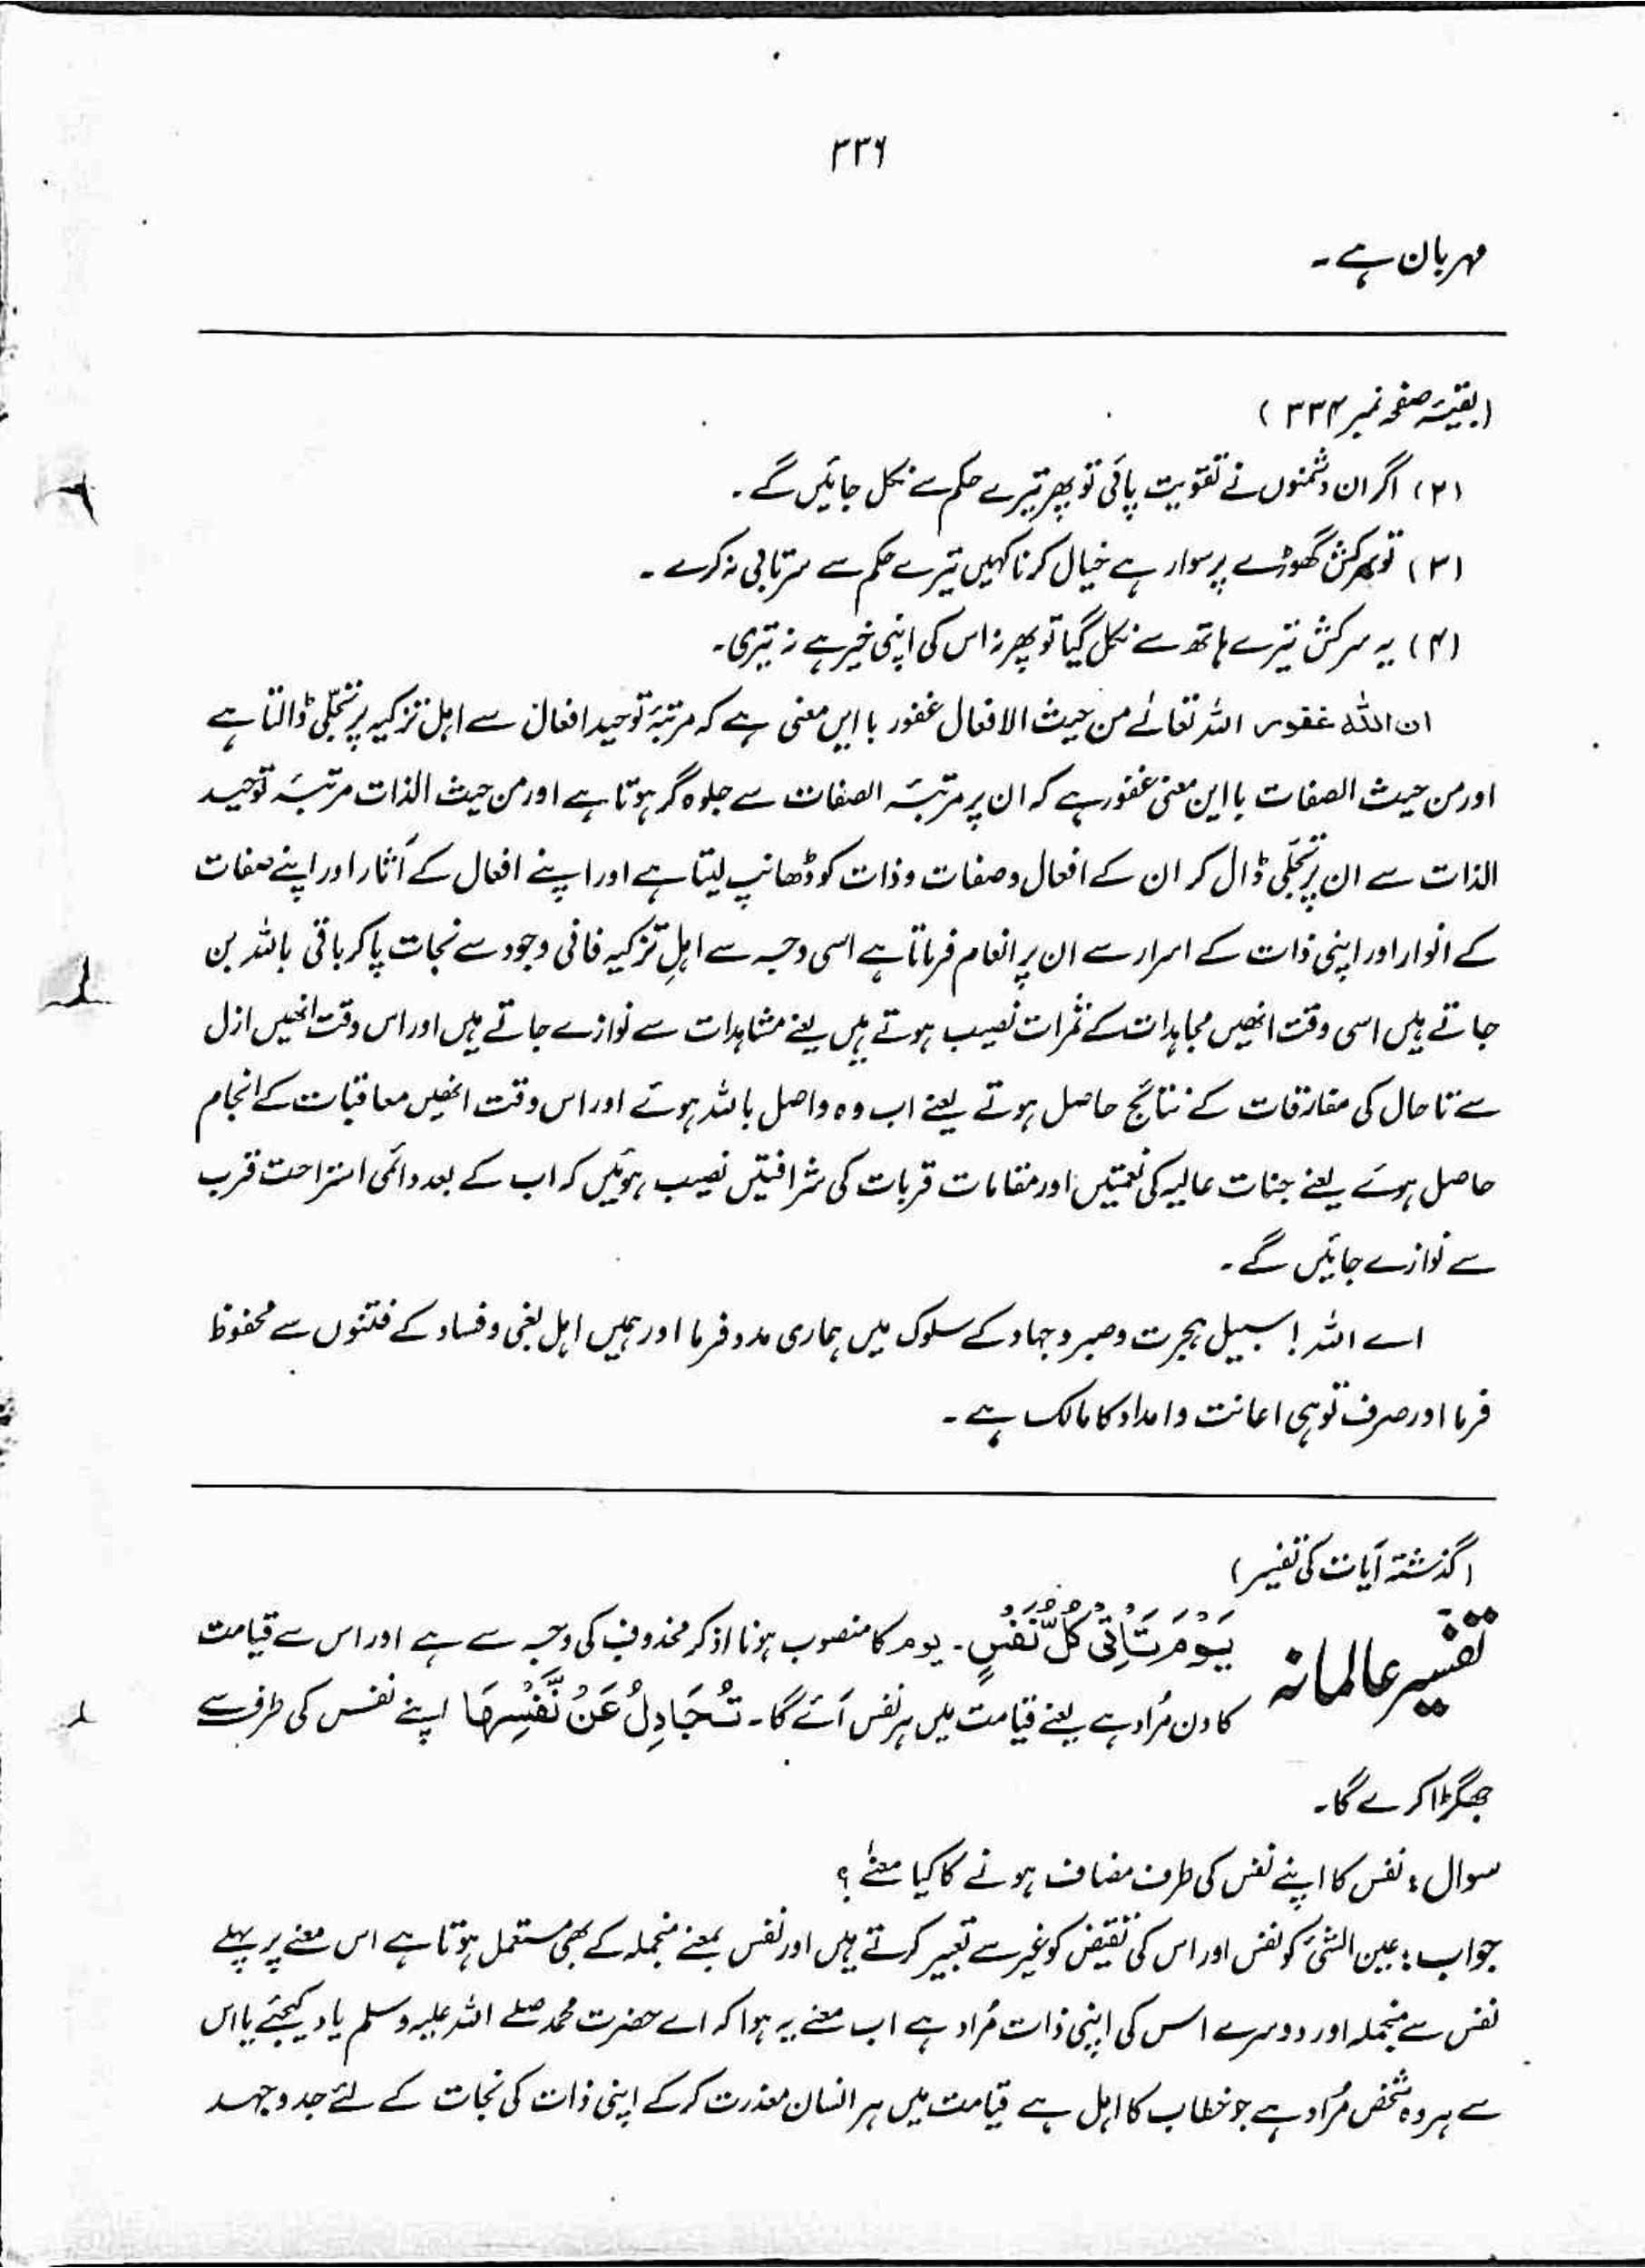 ۳۳۶
مہربان ہے ۔
(بقیہ صفحہ نمبر ۳۳۴)
(۲) اگر ان دشمنوں نے تقویت پائی تو پھر تیرے حکم سے نکل جائیں گے ۔
(۳) تو سرکش گھوڑے پر سوار ہے خیال کرنا کہیں تیرے حکم سے سرتابی نہ کرے ۔
(۴) یہ سرکش تیرے ہاتھ سے نکل گیا تو پھر نہ اس کی اپنی خیر ہے نہ تیری۔
ان اللہ غفور اللہ تعالےٰ من حیث الافعال غفور با ایں معنی ہے کہ مرتبۂ توحید افعال سے اہل تزکیہ پر تجلّی ڈالتا ہے
اور من حیث الصفات با این معنی غفور ہے کہ ان پر مرتبۂ الصفات سے جلوہ گر ہوتا ہے اور من حیث الذات مرتبۂ توحید
الذات سے ان پر تجلّی ڈال کر ان کے افعال و صفات و ذات کو ڈھانپ لیتا ہے اور اپنے افعال کے آثار اور اپنے صفات
کے انوار اور اپنی ذات کے اسرار سے ان پر انعام فرماتا ہے اسی وجہ سے اہلِ تزکیہ فانی وجود سے نجات پا کر باقی باللہ بن
جاتے ہیں اسی وقت انھیں مجاہدات کے ثمرات نصیب ہوتے ہیں یعنے مشاہدات سے نوازے جاتے ہیں اور اس وقت انھیں ازل
سے تا حال کی مفارقات کے نتائج حاصل ہوتے یعنے اب وہ واصل باللہ ہوئے اور اس وقت انھیں معاقبات کے انجام
حاصل ہوئے یعنے جنات عالیہ کی نعمتیں اور مقامات قربات کی شرافتیں نصیب ہوئیں کہ اب کے بعد دائمی استراحت قرب
سے نوازے جائیں گے ۔
اے اللہ ! سبیل ہجرت و صبر و جہاد کے سلوک میں ہماری مدد فرما اور ہمیں اہل بغی و فساد کے فتنوں سے محفوظ
فرما اور صرف تو ہی اعانت و امداد کا مالک ہے ۔
(گذشتہ آیات کی تفسیر)
تفسیر عالمانہ
یَوْمَ تَاْتِیْ کُلُّ نَفْسٍ ۔ یوم کا منصوب ہونا اذکر محذوف کی وجہ سے ہے اور اس سے قیامت
کا دن مُراد ہے یعنے قیامت میں ہر نفس آئے گا۔ تُجَادِلُ عَنْ نَّفْسِهَا اپنے نفس کی طرف سے
جھگڑا کرے گا۔
سوال : نفس کا اپنے نفس کی طرف مضاف ہونے کا کیا معنےٰ ؟
جواب : عین الشیٔ کو نفس اور اس کی نقیض کو غیر سے تعبیر کرتے ہیں اور نفس بمعنے منجملہ کے بھی مستعمل ہوتا ہے اس معنے پر پہلے
نفس سے منجملہ اور دوسرے اس کی اپنی ذات مُراد ہے اب معنے یہ ہوا کہ اے حضرت محمد صلے اللہ علیہ وسلم یاد کیجئے یا اس
سے ہر وہ شخص مُراد ہے جو خطاب کا اہل ہے قیامت میں ہر انسان معذرت کر کے اپنی ذات کی نجات کے لئے جد و جہد